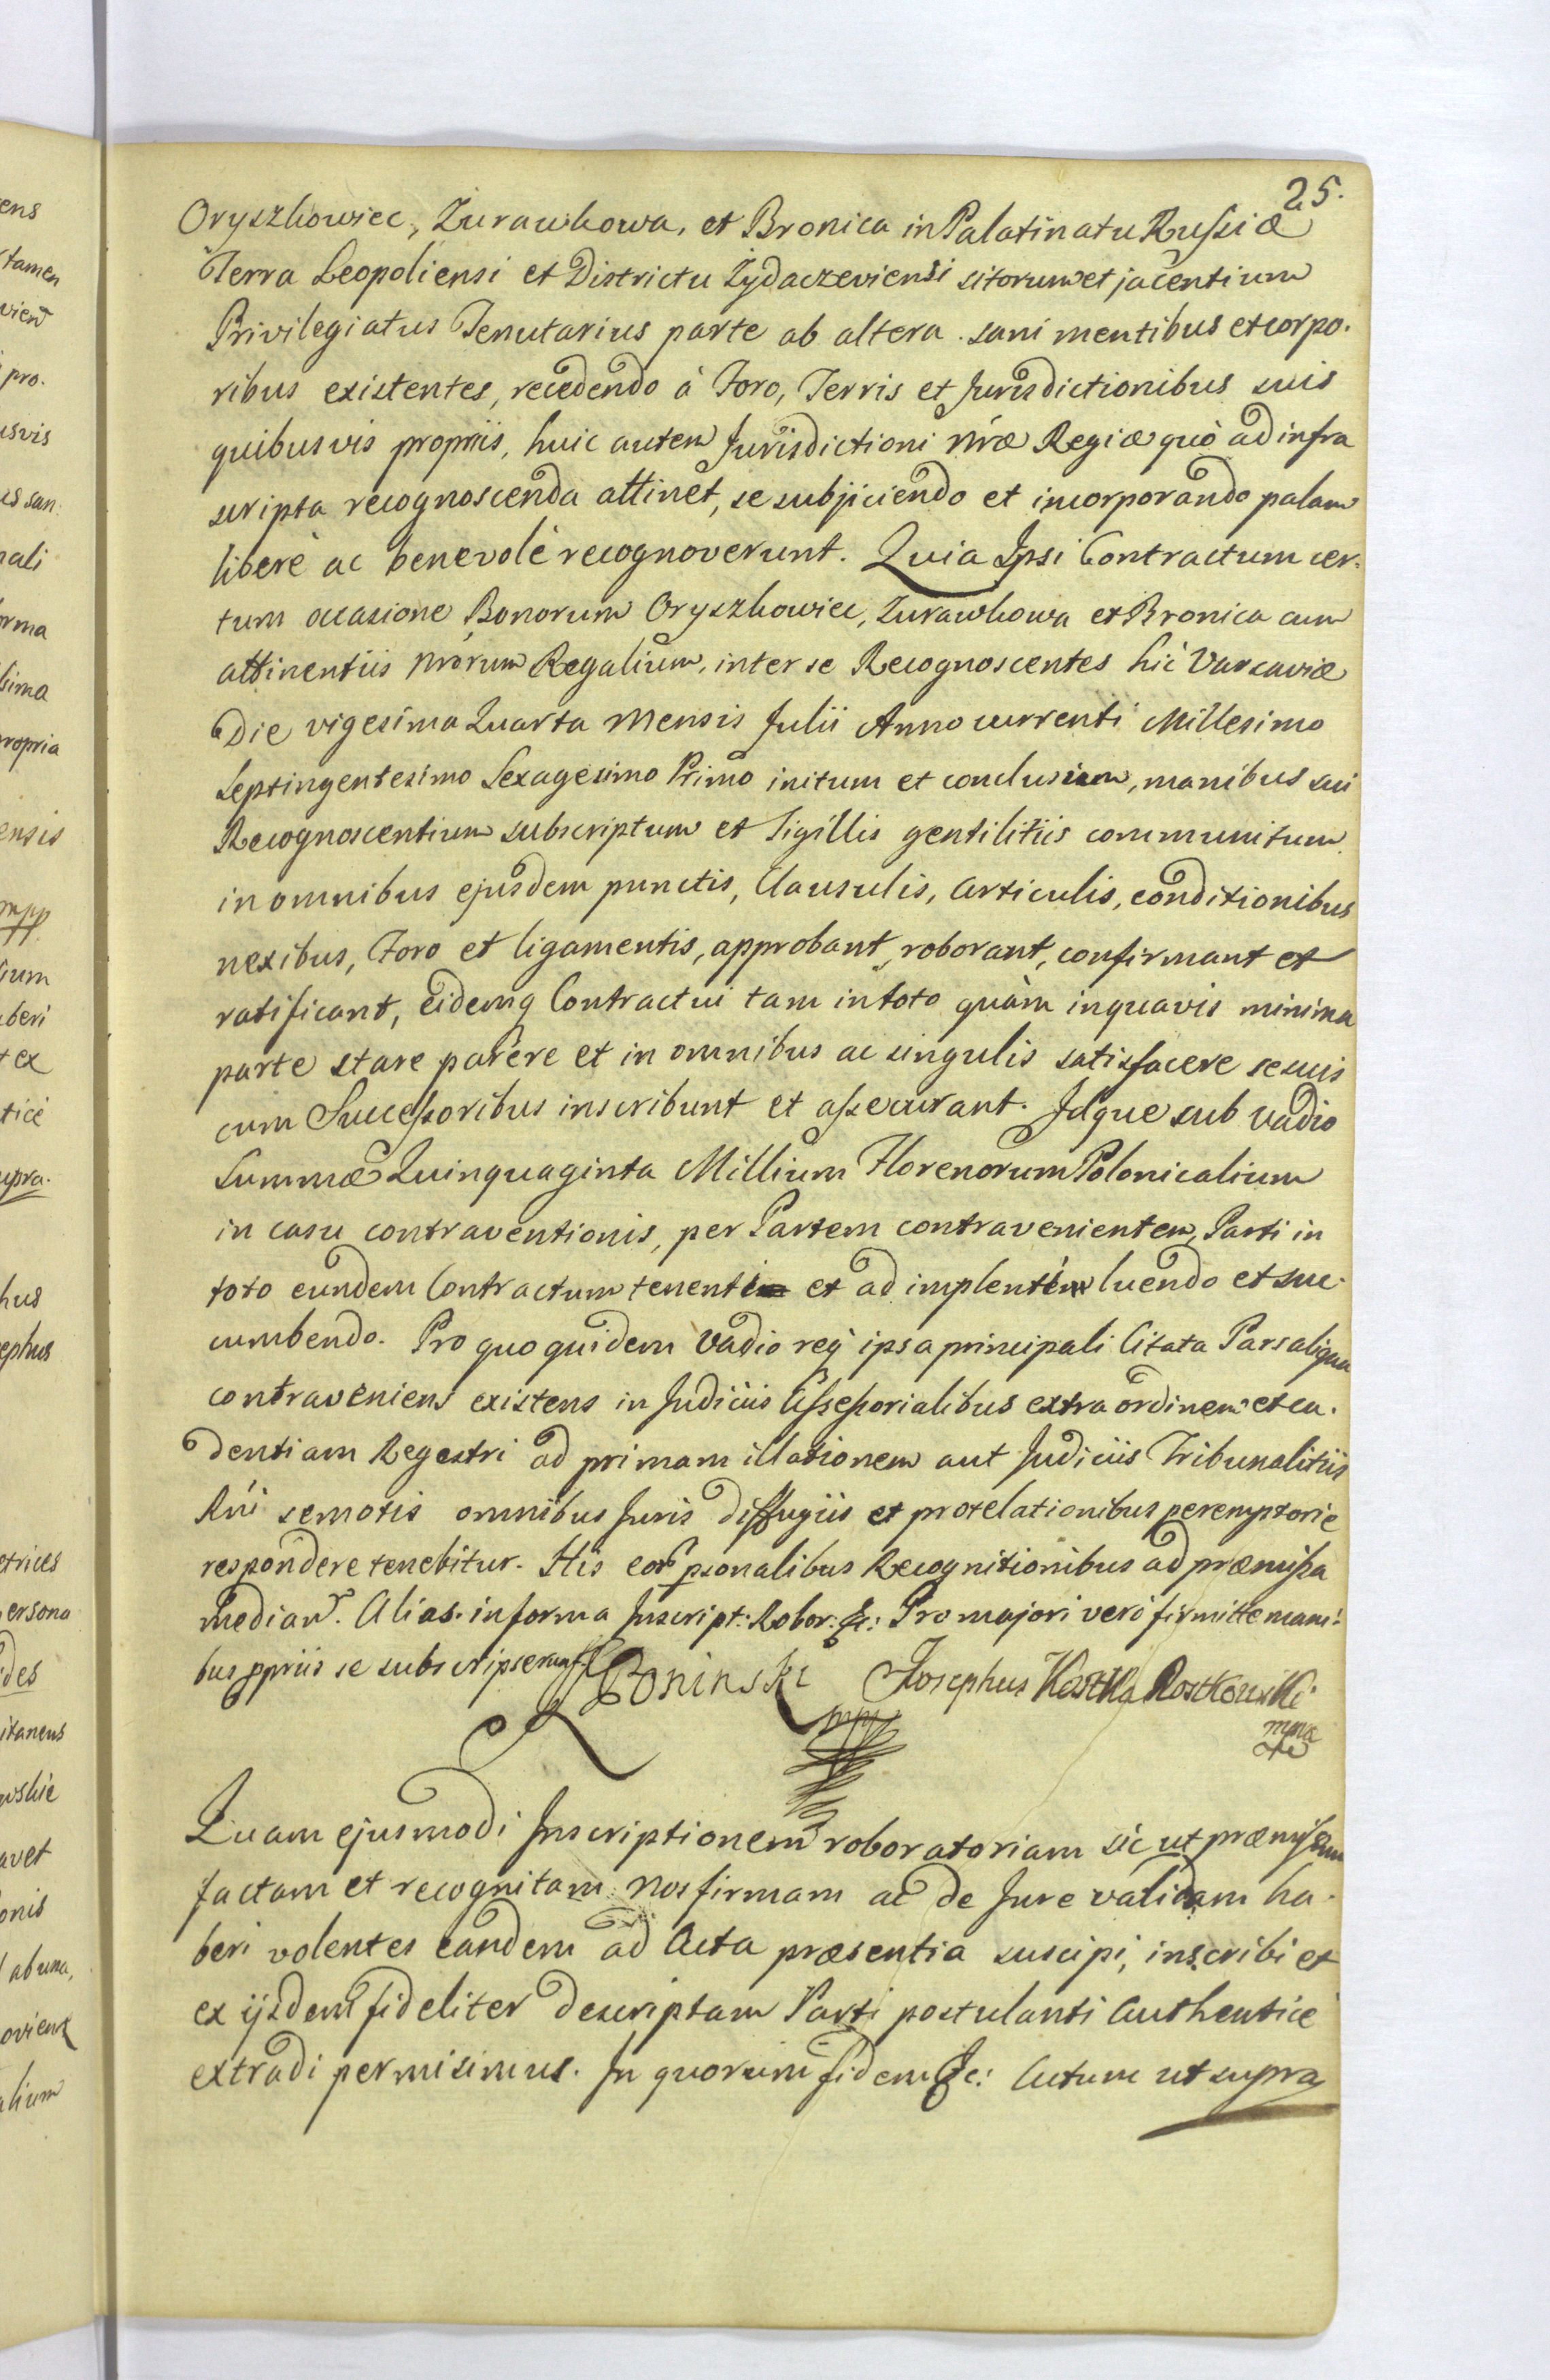 25.
Oryszkowiec, Żurawkowa, et Bronica in Palatinatu Russiæ
Terra Leopoliensi et Districtu Żydaczeviensi sitorum et jacentium
Privilegiatus Tenutarius parte ab altera. sani mentibus et corpo.
ribus existentes, recedendo à Foro, Terris et Jurisdictionibus suis
quibusvis propriis, huic autem Jurisdictioni nræ Regiæ quò ad infra
scripta recognoscenda attinet, se subjiciendo et incorporando palam
liberè ac benevolè recognoverunt. Quia Ipsi Contractum cer.
tum occasione Bonorum Oryszkowiec, Żurawkowa et Bronica cum
attinentiis nrorum Regalium, inter se Recognoscentes hic Varsaviæ
Die vigesima Quarta Mensis Julii Anno currenti Millesimo
Septingentesimo Sexagesimo Primo initum et conclusum, manibus sui
Recognoscentium subscriptum et Sigillis gentilitiis communitum
in omnibus ejusdem punctis, Clausulis, Articulis, conditionibus
nexibus, Foro et ligamentis, approbant, roborant, confirmant et
ratificant, eidemq Contractui tam in toto quàm in quavis minima
parte stare parère et in omnibus ac singulis satisfacere se suis
cum Successoribus inscribunt et assecurant. Idque sub vadio
Summæ Quinquaginta Millium Florenorum Polonicalium
in casu contraventionis, per Partem contravenientem, Parti in
toto eundem Contractum tenenti et ad implenti luendo et suc.
cumbendo. Pro quo quidem Vadio req ipsa principali Citata Pars aliqua
contraveniens existens in Judiciis Assessorialibus extra ordinem et ca.
dentiam Regestri ad primam illationem aut Judiciis Tribunalitiis
Rni semotis omnibus Juris diffugiis et protelationibus peremptoriè
respondere tenebitur. His eor psonalibus Recognitionibus ad præmissa
median. Alias. in forma Inscript: Robor: &c: Pro majori verò firmitte mani:
bus ppriis se subscripserunt. Poninski Josephus Kostka Rostkowski
mpp mpria
Quam ejusmodi Inscriptionem roboratoriam sic ut præmissum
factam et recognitam nos firmam ac de Jure validam ha.
beri volentes eandem ad Acta præsentia suscipi, inscribi et
ex ijsdem fideliter descriptam Parti postulanti Authenticè
extradi permisimus. In quorum fidem &c: Actum ut supra